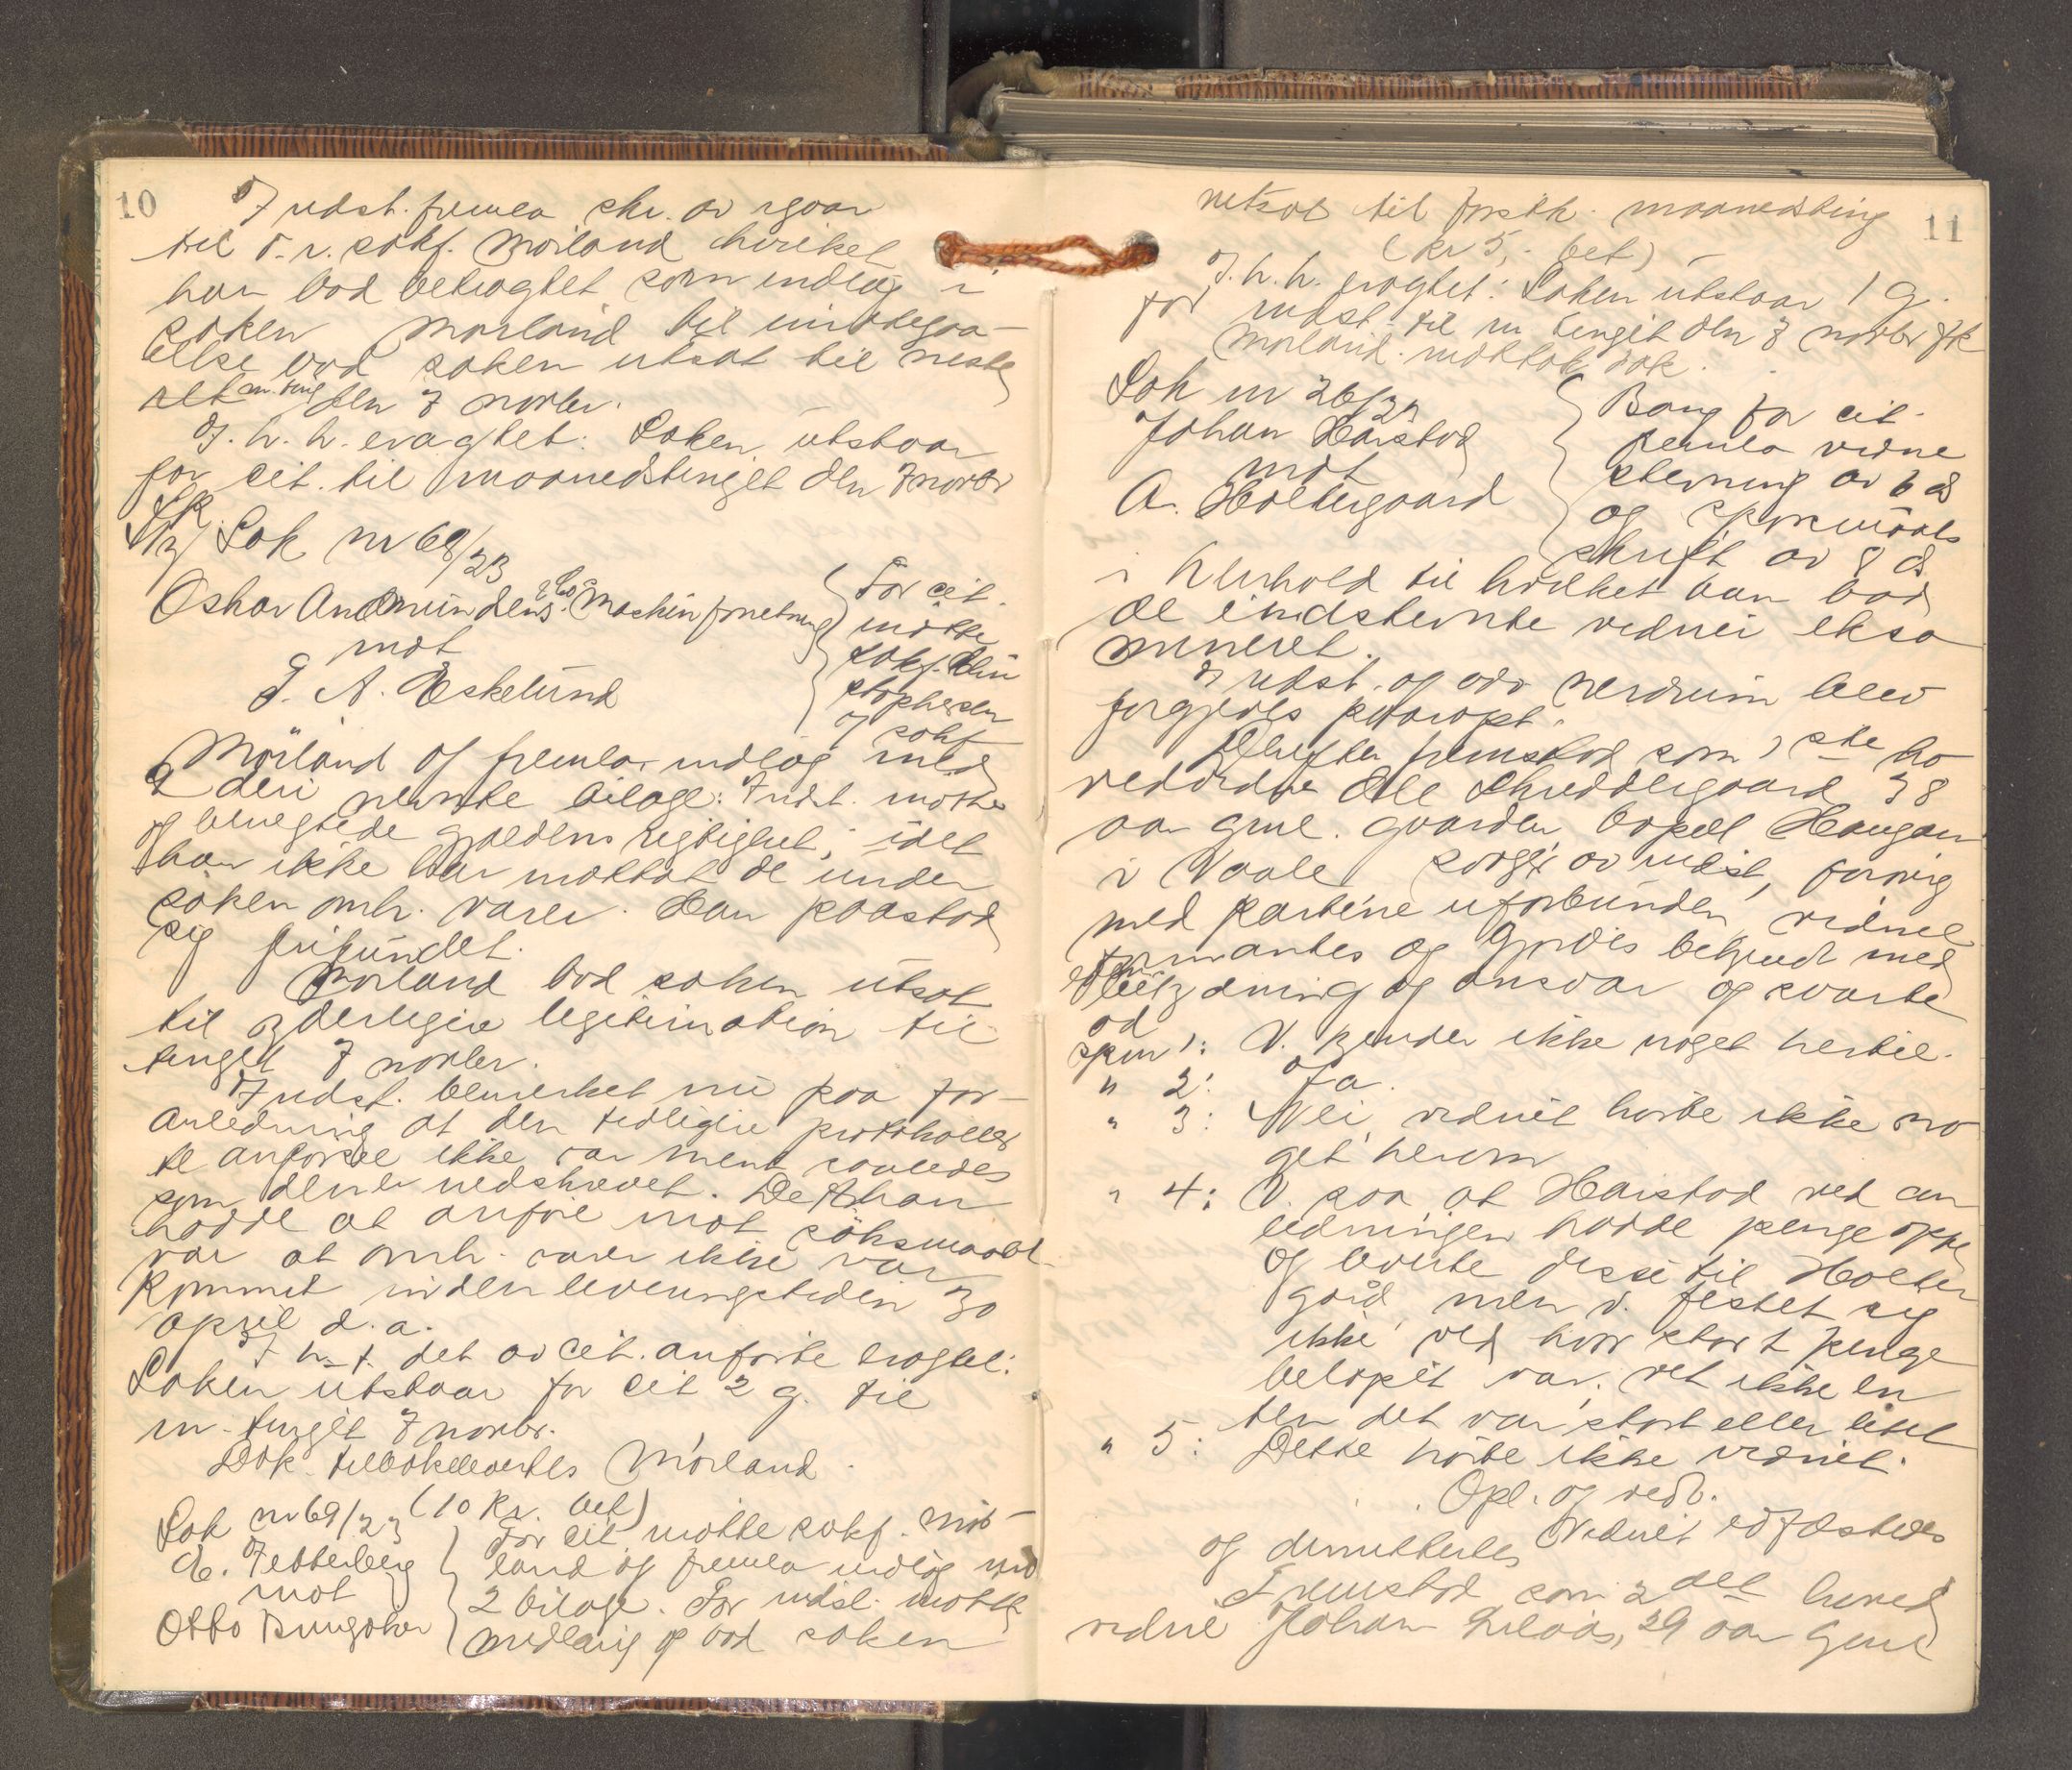 10
Indst. fremla skr. av igaar
til o.r.sakf. Mørland hvilket
han bad betragtet som indlæg i
saken Mørland til imøtegaa-
else bad saken utsat til neste
alm. ting den 7 novbr.
I. h. h. eragtet: Saken utstaar
for cit. til maanedstinget den 7 novbr
Sak nr 68/23
Oskar Andmundsens & Co Maskinforretning
mot
J. A. Eskelund
For cit.
møtte
sakf. Chri
stophersen
og sakf
Mørland og fremla indlæg med
2 deri nevnte bilage: Indst. møtte
og benegtede gjældens rigtighet, idet
han ikke har mottat de under
saken omh. varer. Han paastod
sig frifundet.
Mørland bad saken utsat
til yderligere legitimation til
tinget 7 novbr.
Indst. bemerket nu paa for-
anledning at den tidligere protokoller
te anførsel ikke var ment saaledes
som den er nedskrevet. Det han
hadde at anføre mot søksmaalet
var at omh. varer ikke var
kommet inden leveringstiden 30
april d. a.
I h. t. det av cit. anførte eragtet:
Saken utstaar for cit 2 g. til
m. tinget 7 novbr.
Dok. tilbakeleveredes Mørland.
(10 kr. bet)
Sak nr 69/23
E. Zetterberg
mot
Otto Bungaker
For cit møtte sakf. Mør-
land og fremla indlæg med
2 bilage. For indst. møtte
og bad saken
11
utsat til førstk. maanedsting
(kr 5,- bet)
I. h. h. eragtet: Saken utstaar 1 g.
for indst. til m tinget den 7 novbr fk
Mørland mottok dok.
Sak nr 26/23
Johan Harstad
mot
A. Holtergaard
Bang for cit.
fremla vidne
stevning av 6 ds
og spørsmaals
skrift av 8 ds
i henhold til hvilket han bad
de indstevnte vidner eksa
mineret.
Indst. og adv Nerdrum blev
forgjæves paaropt.
Derefter fremstod som 1ste ho
vedvidne Ole 38
aar gml. gaardbr bopæl Haugan
i Vaale av indst, forøvrig
med parterne uforbunden vidnet
formantes og gjordes bekjendt med
edens betydning og ansvar og svarte
ad
spm 1: V. kjender ikke noget hertil.
" 2: Ja.
" 3: Nei, vidnet hørte ikke no
get herom
" 4: V. saa at Harstad ved an
ledningen hadde penge oppe
og leverte disse til Holter
gård, men v. festet sig
ikke ved hvor stort penge
beløpet var; vet ikke en
ten det var stort eller litet
" 5: Dette hørte ikke vidnet.
Opl. og vedt.
Vidnet edfæstedes
og dimitteredes
Fremstod som 2det hoved
vidne Johan 29 aar gml